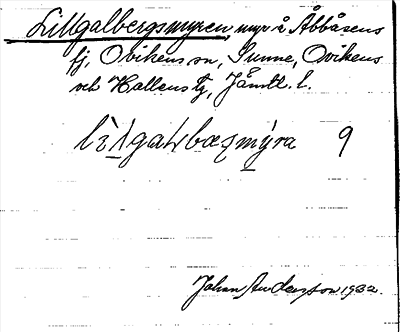 Lillgalbergsmyren, myr å Åbbåsens
fj, Ovikens sn, Sunne, Ovikens
och Hallens tg, Jämtl. l.
9
Johan Anderson 1932.